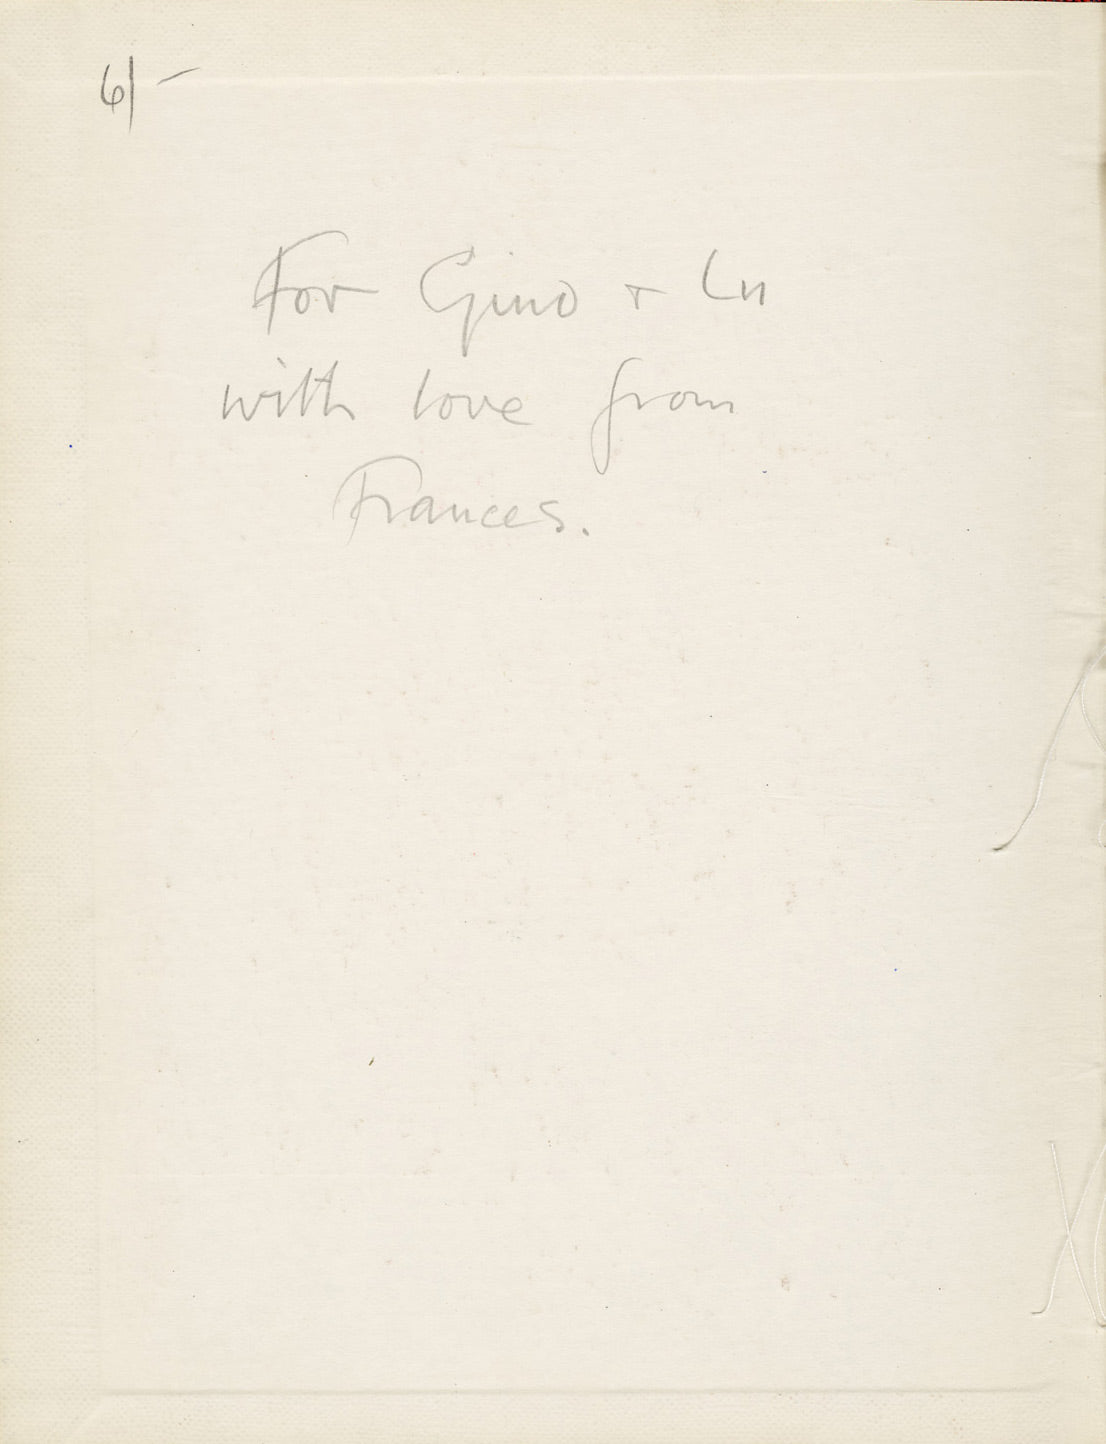 6/-
For Gino + Lu
with love from
Frances.